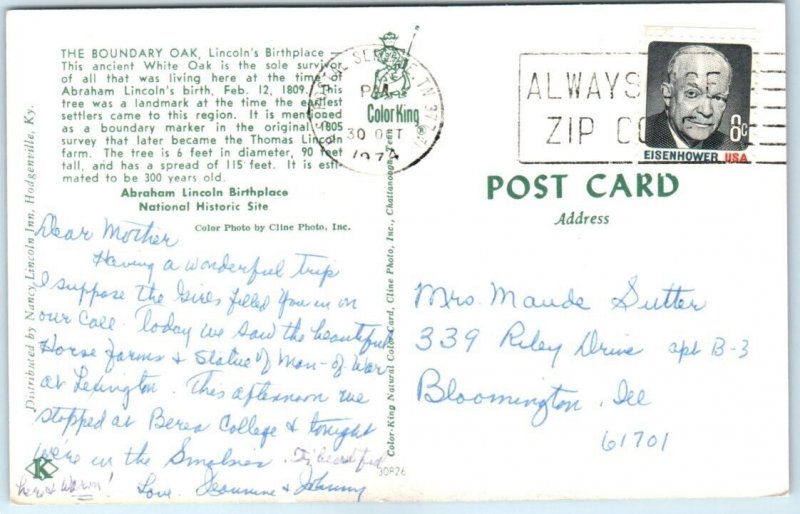 THE BOUNDARY OAK, Lincoln's Birthplace
This ancient White Oak is the sole survivor
of all that was living here at the time of
Abraham Lincoln's birth, Feb. 12, 1809. This
tree was a landmark at the time the earliest
settlers came to this region. It is mentioned
as a boundary marker in the original 1805
survey that later became the Thomas Lincoln
farm. The tree is 6 feet in diameter, 90 feet
tall, and has a spread of 115 feet. It is esti-
mated to be 300 years old.
Abraham Lincoln Birthplace
National Historic Site
Color Photo by Cline Photo, Inc.
Distributed by Nancy Lincoln Inn, Hodgenville, Ky.
Dear Mother
Having a wonderful trip
I suppose the Girls filled you in on
our call. Today we saw the beautiful
Horse farms & Statue of Man-of War
at Lexington. This afternoon we
stopped at Berea College & tonight
we're in the Smokies. It's beautiful
here & warm!
Love Jeannine & Johnny
K
Color King
PM
30 OCT
1974
TN
Color-King Natural Color Card, Cline Photo, Inc., Chattanooga, Tenn.
30826
ALWAYS USE
ZIP CO
8c
EISENHOWER USA
POST CARD
Address
Mrs. Maude Sutter
339 Riley Drive apt B-3
Bloomington, Ill
61701